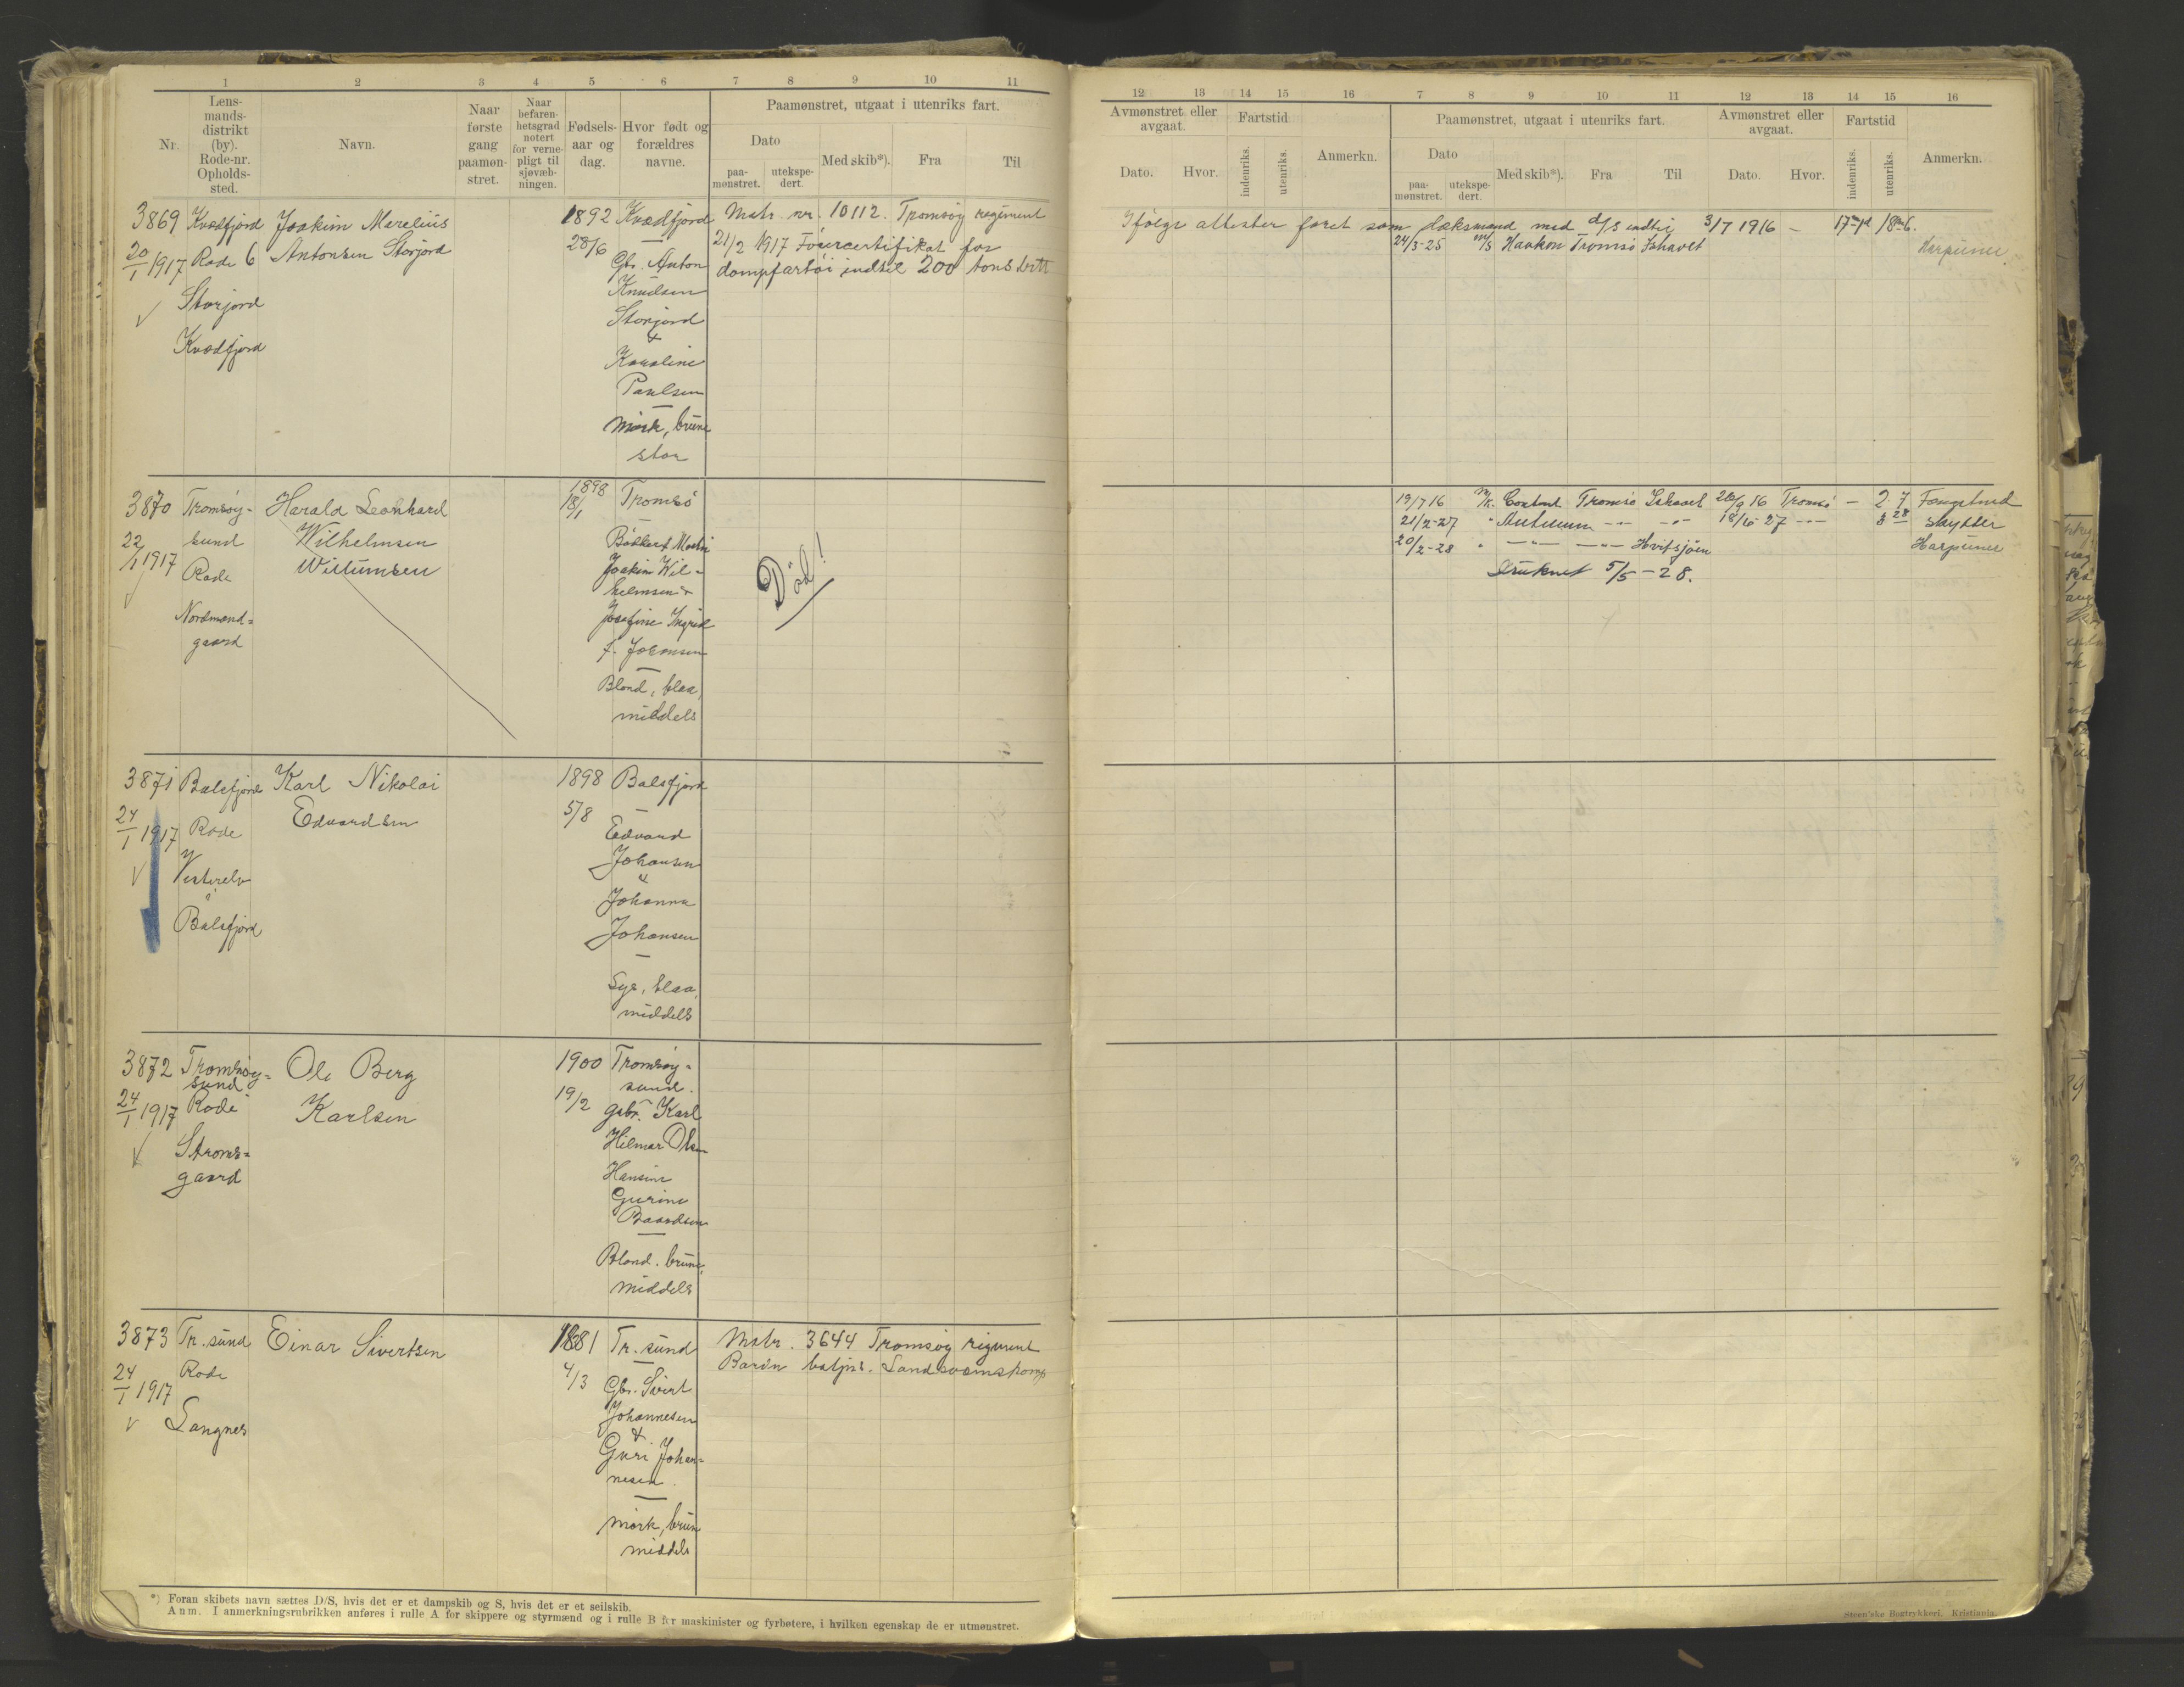 1 2 3 4 5 6 7 8 9 10 11
Nr.
Lens-
mands-
distrikt
(by).
Rode-nr.
Opholds-
sted.
Navn.
Naar
første
gang
paamøn-
stret.
Naar
befaren-
hetsgrad
notert
for verne-
pligt til
sjøvæb-
ningen.
Fødsels-
aar og
dag.
Hvor født og
forældres
navne.
Paamønstret, utgaat i utenriks fart.
Dato
paa-
mønstret.
utekspe-
dert.
Med skib*).
Fra
Til
3869
20/1 1917
Kvædfjord
Rode 6
Storjord
Kvædfjord
Joakim Marelius
Antonsen Storjord
1892
28/6
Kvædfjord
Gbr. Anton
Knudsen
Storjord
&
Karoline
Paulsen
Mörk, brune
stor
Matr. nr. 10112. Tromsøy regiment
21/2 1917 Förercertifikat for
dampfartöi indtil 200 tons drtt
3870
22/1 1917
Tromsøy-
sund
Rode
Nordmand-
gaard
Harald Leonhard
Wilhelmsen
Willumsen
1898
18/1
Tromsö
Joakim Wil-
helmsen &
Josefine Ingrid
f. Johansen
Blond, blaa,
middels
Död!
3871
24/1 1917
Balsfjord
Rode
Vesterelv
i
Balsfjord
Karl Nikolai
Edvardsen
1898
5/8
Balsfjord
Edvard
Johansen
&
Johanna
Johansen
Lys, blaa,
middels
3872
24/1 1917
Tromsøy-
sund
Rode
Stroms-
gaard
Ole Berg
Karlsen
1900
19/2
Tromsøy-
sund.
gbr. Karl
Hilmar Olsen
Hansine
Gurine
Baardsen
Blond. brune,
middels
3873
24/1 1917
Tr. sund
Rode
Langnes
Einar Sivertsen
1881
4/3
Tr. sund
Gbr. Sivert
Johannesen
&
Guri Johan-
nesen.
Mörk, brun
middels
Matr. 3644 Tromsøy regiment
batjn. Landsvernskomp
*) Foran skibets navn sættes D/S, hvis det er et dampskib og S, hvis det er et seilskib.
Anm. I anmerkningsrubrikken anføres i rulle A for skippere og styrmænd og i rulle B for maskinister og fyrbøtere, i hvilken egenskap de er utmønstret.
12 13 14 15 16 7 8 9 10 11 12 13 14 15 16
Avmønstret eller
avgaat.
Dato.
Hvor.
Fartstid
indenriks.
utenriks.
Anmerkn.
Paamønstret, utgaat i utenriks fart.
Dato
paa-
mønstret.
utekspe-
dert.
Med skib*).
Fra
Til
Avmønstret eller
avgaat.
Dato.
Hvor.
Fartstid
indenriks.
utenriks.
Anmerkn.
Ifølge attester faret som dæksmand med d/s indtil 3/7 1916 –
24/3-25 m/s Haakon Tromsö Ishavet Harpuner.
19/7 16 m/k. Tromsö Ishavet 26/9 16 Tromsö – 2. 7 Fangstmd
21/2-27 " Autumn -"- -"- 18/6-27 -"- Skytter
20/2-28 " -"- -"- Hvitsjöen Harpuner
Druknet 5/5-28.
Steen'ske Bogtrykkeri. Kristiania.